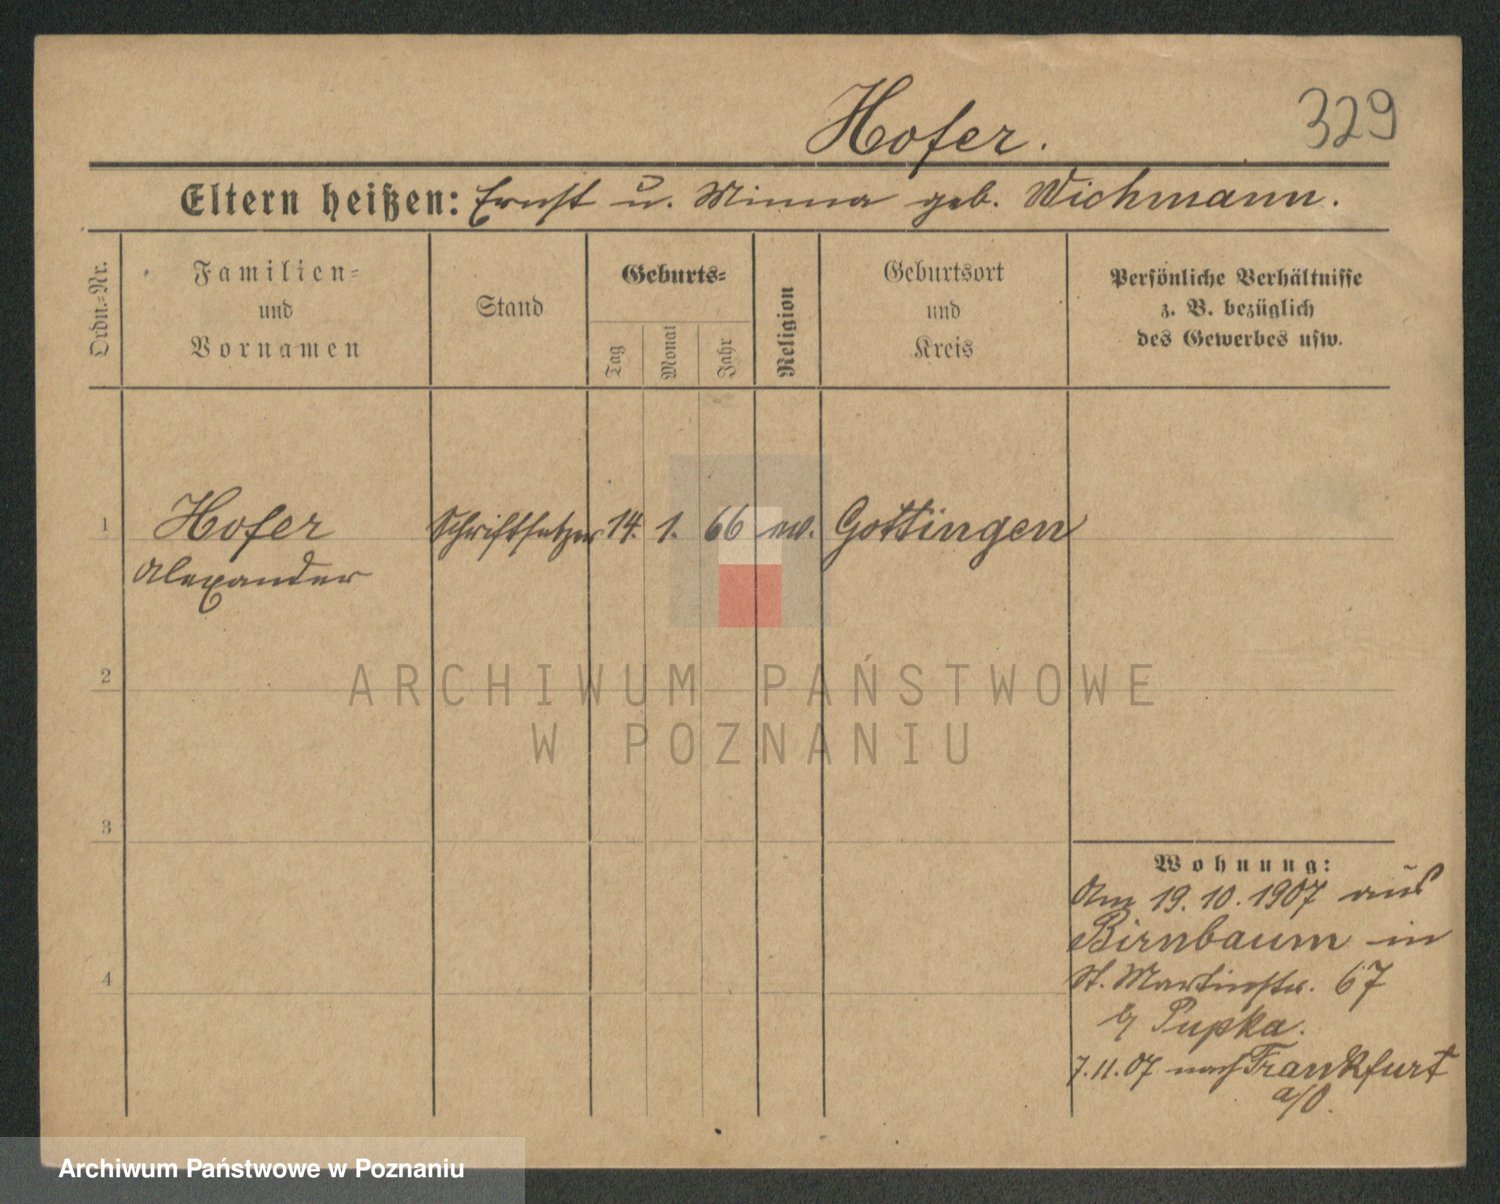 Hofer.
329
Eltern heißen: Ernst u. Minna geb. Wichmann.
Ordn.-Nr.
Familien-
und
Vornamen
Stand
Geburts-
Tag
Monat
Jahr
Religion
Geburtsort
und
Kreis
Persönliche Verhältnisse
z. B. bezüglich
des Gewerbes usw.
1
Hofer
Alexander
Schriftsetzer
14.
1.
66
ev.
Gottingen
ARCHIWUM PAŃSTWOWE
W POZNANIU
2
3
4
Wohnung:
Am 19.10.1907 aus
Birnbaum in
St. Martinstr. 67
b/ Pupka.
7.11.07 nach Frankfurt
a/O.
Archiwum Państwowe w Poznaniu